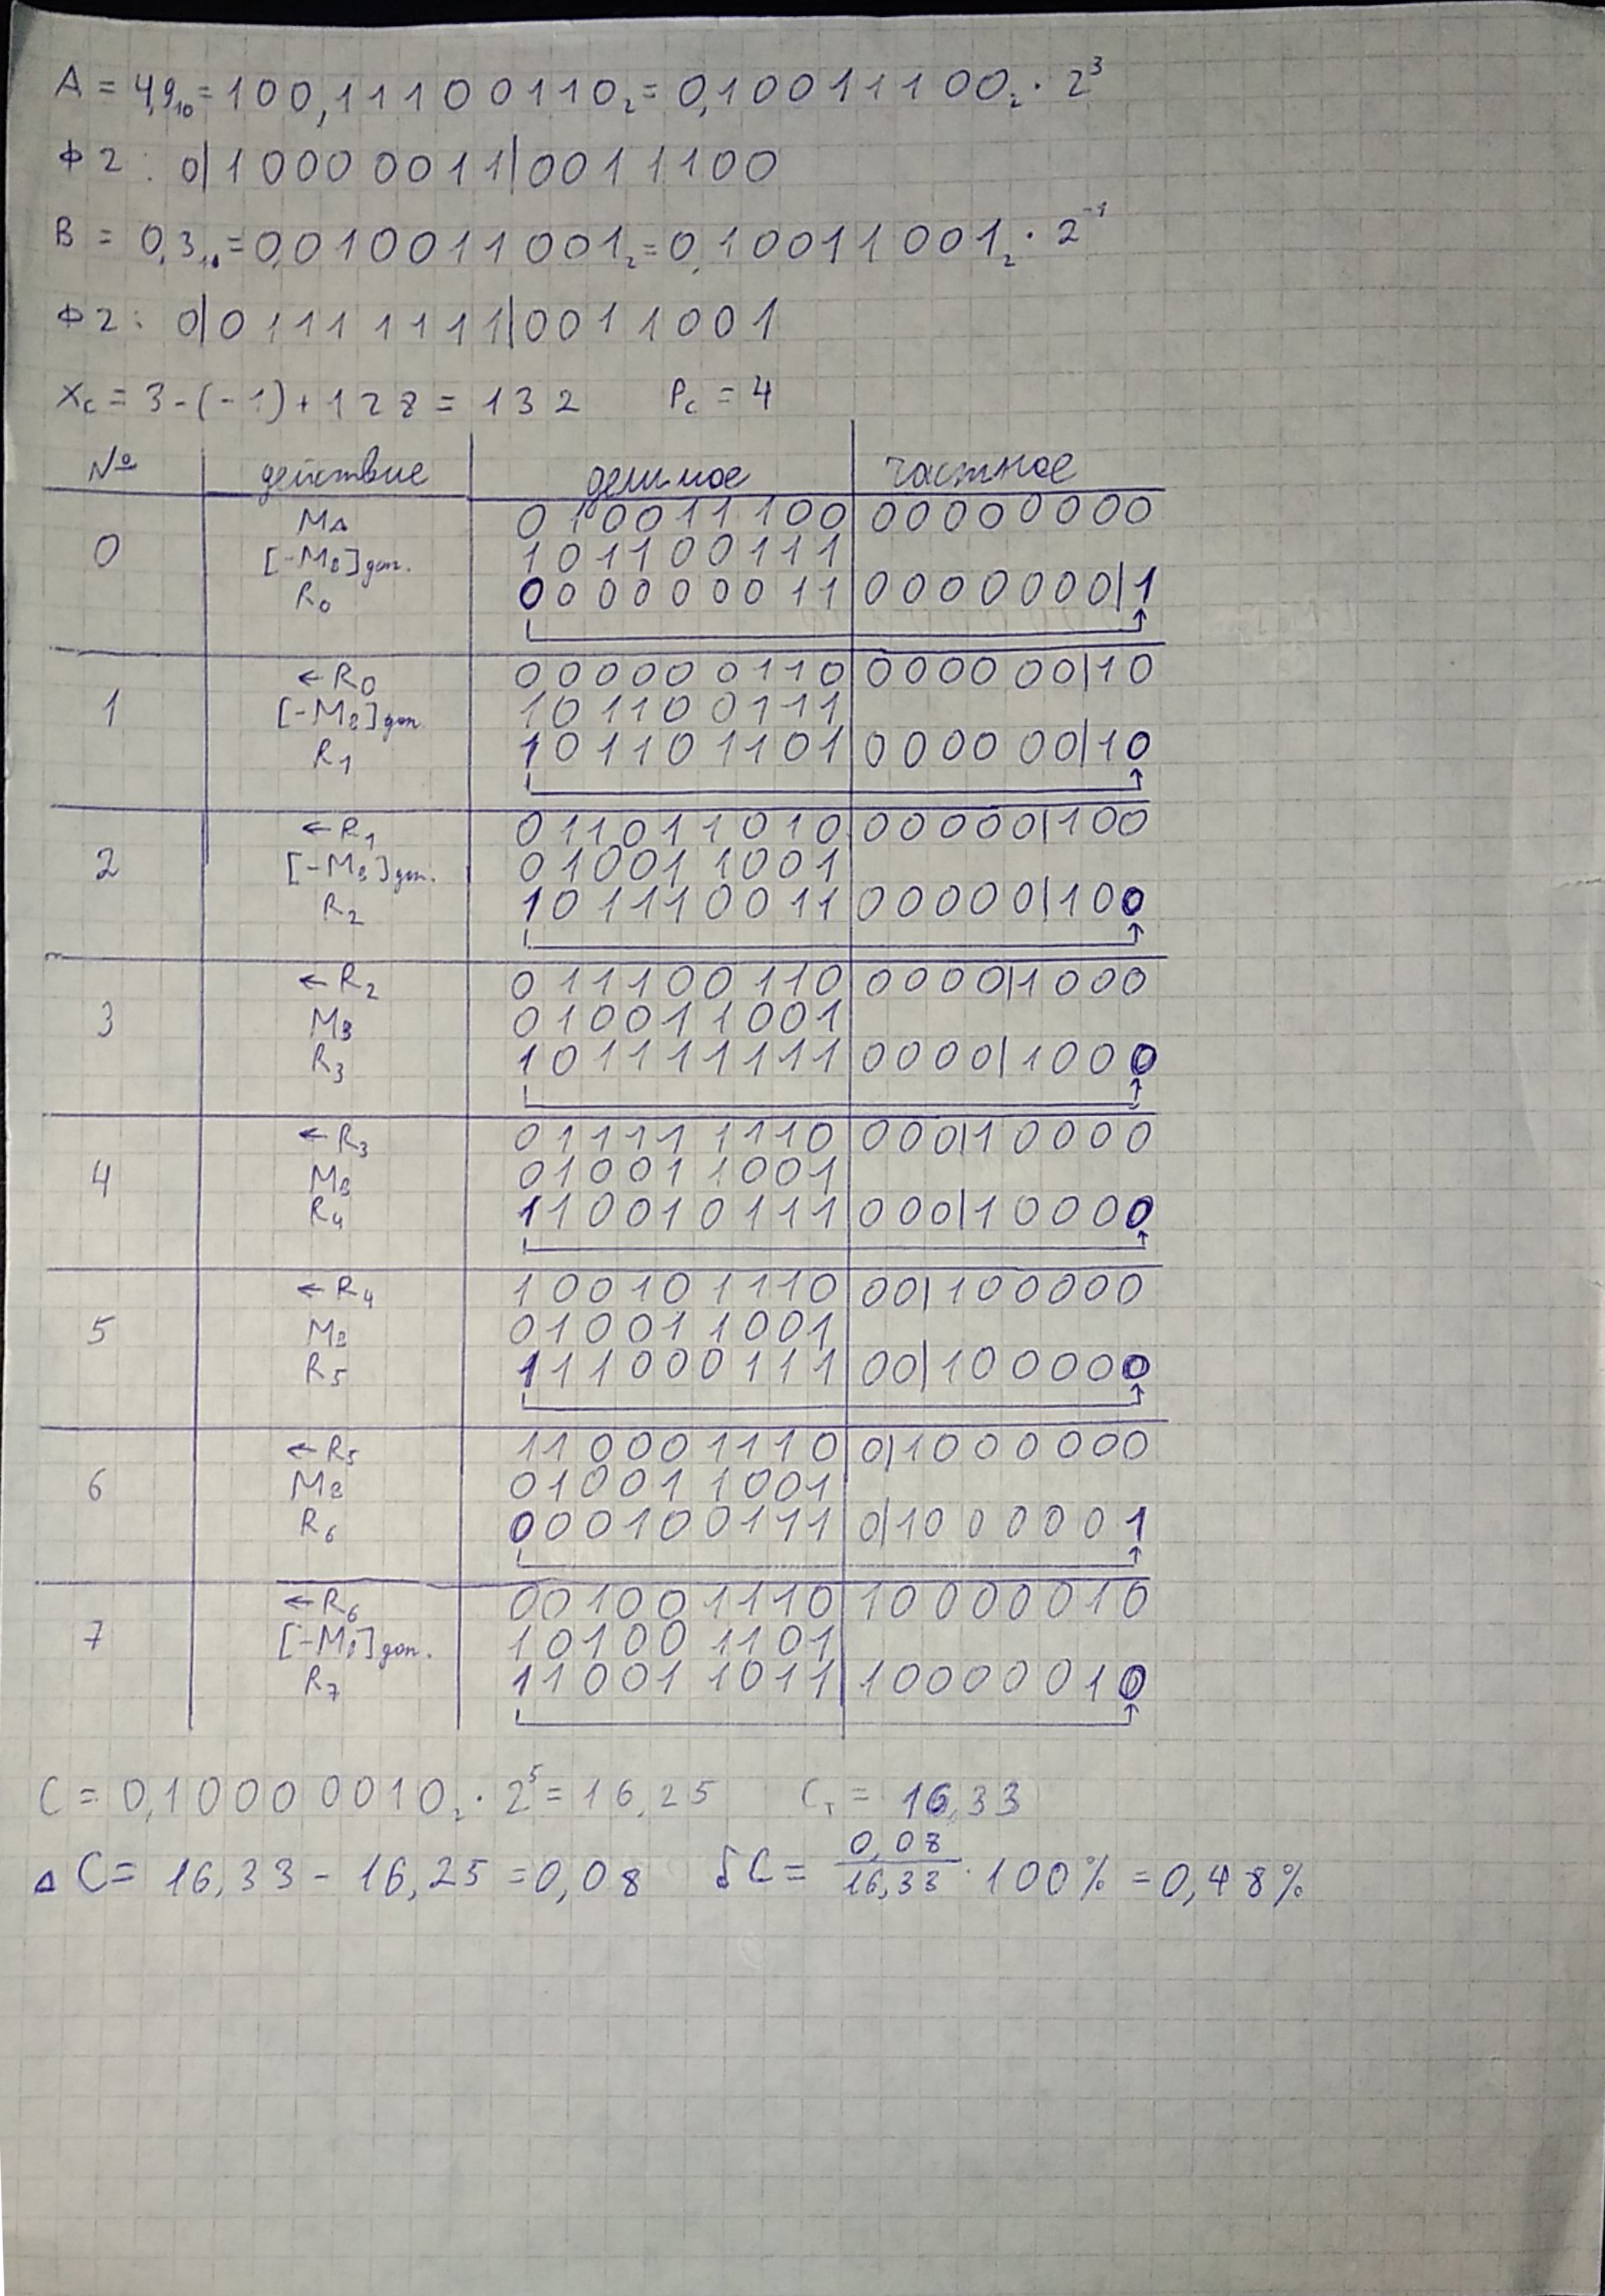 A = 4,9₁₀ = 100,1110 0110₂ = 0,10011100₂ · 2³
Ф2: 0|10000011|0011100
B = 0,3₁₀ = 0,0010011001₂ = 0,10011001₂ · 2⁻¹
Ф2: 0|01111111|0011001
Xc = 3-(-1)+128 = 132 Pc = 4
№ действие делимое частное
0 MA 010011100 00000000
[-MB]доп. 101100111
R0 000000011 0000000|1
1 ←R0 000000110 000000|10
[-MB]доп. 101100111
R1 101101101 000000|10
2 ←R1 011011010 00000|100
[-MB]доп. 010011001
R2 101110011 00000|100
3 ←R2 011100110 0000|1000
MB 010011001
R3 101111111 0000|1000
4 ←R3 011111110 000|10000
MB 010011001
R4 110010111 000|10000
5 ←R4 100101110 00|100000
MB 010011001
R5 111000111 00|100000
6 ←R5 110001110 0|1000000
MB 010011001
R6 000100111 0|1000001
7 ←R6 001001110 10000010
[-MB]доп. 101001101
R7 110011011 10000010
C = 0,10000010₂ · 2⁵ = 16,25 Cт = 16,33
ΔC = 16,33 - 16,25 = 0,08 δC = 0,08/16,33 · 100% = 0,48%